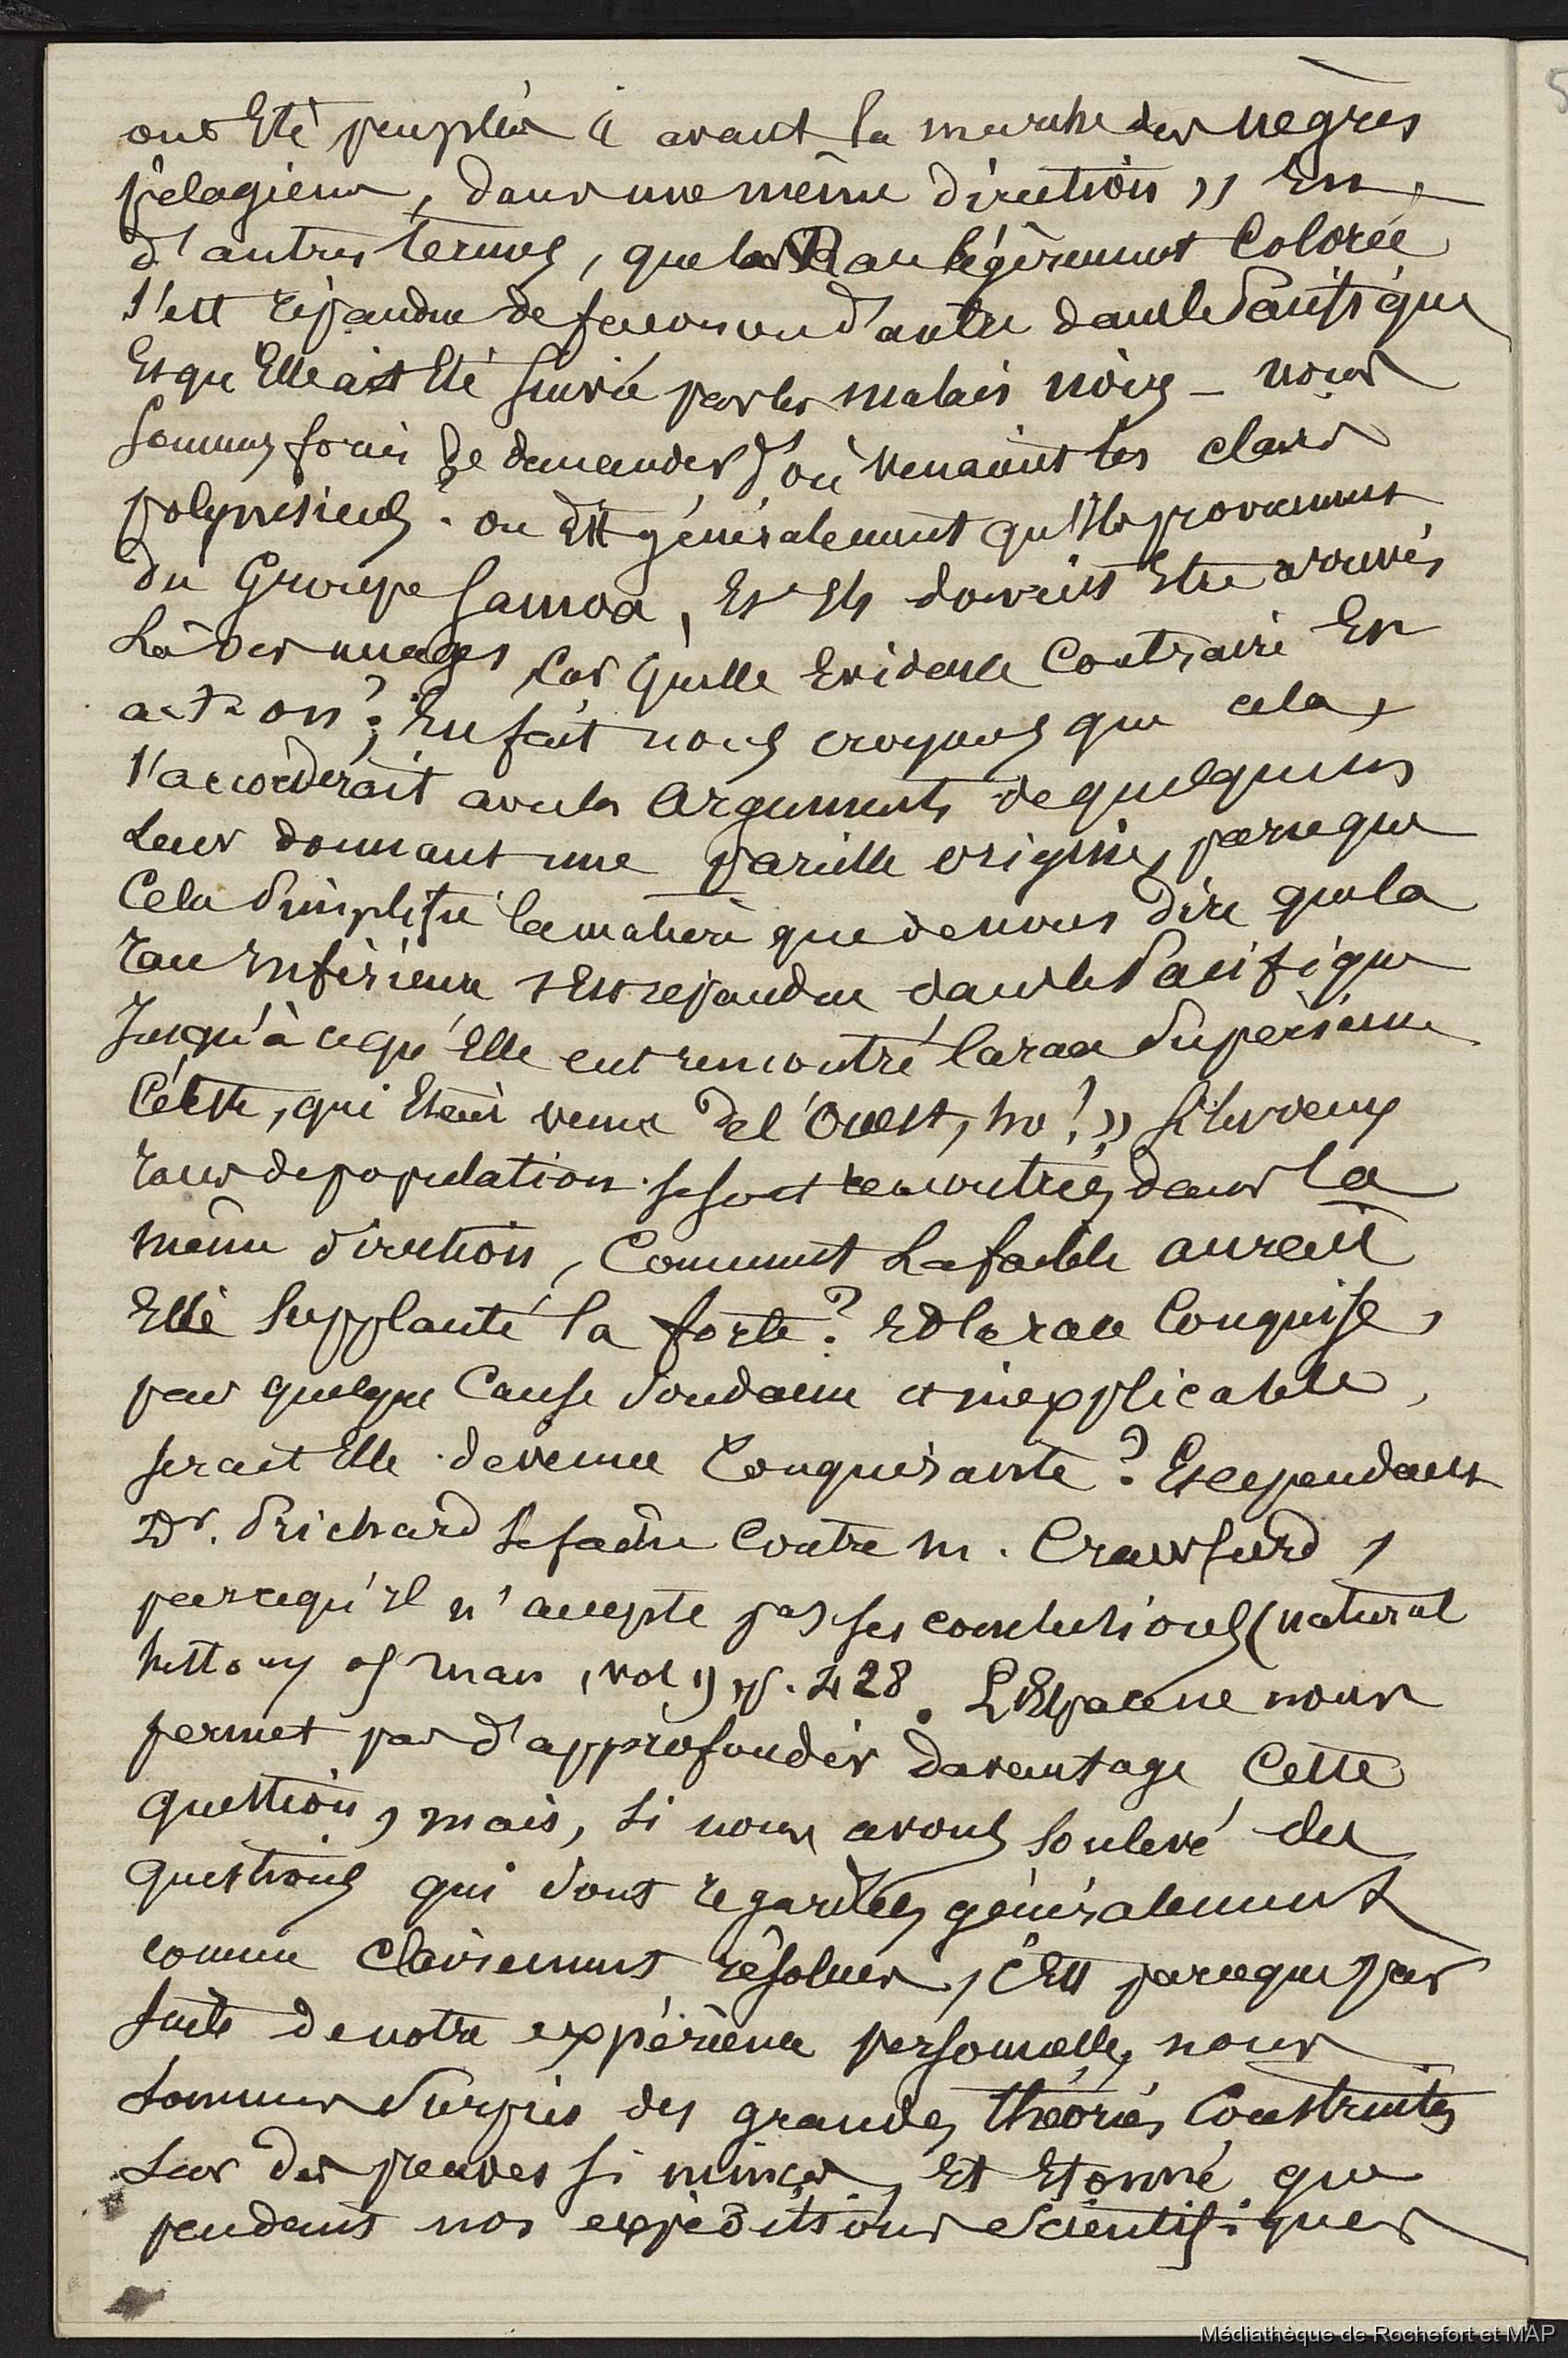 ont Eté peuplées « avant la marche des nègres
pélagiens, dans une même direction » En,
d'autres termes, que la Race légèrement Colorée
s'est répandue de façon ou d'autre dans le Pacifique
Et qu'Elle ait Eté suivie par les malais noirs – nous
sommes forcés de demander d'où venaient les clairs
polynésiens. on dit généralement qu'Ils proviennent
du Groupe Samoa, Et Ils doivent Etre arrivés
Là des nuages car quelle Evidence Contraire En
a-t-on ? En fait nous croyons que cela,
s'accorderait avec les Arguments de quelques uns
Leur donnant une pareille origine, parceque
Cela Simplifie la matière que de nous dire que la
race Inférieure s'Est répandue dans le Pacifique
Jusqu'à ce qu'Elle eut rencontré la race Supérieure
Céleste, qui Etait venue de l'Ouest, ho ! » Si les deux
races de population se sont rencontrées dans la
même direction, Comment La faible aurait
Elle Supplanté la forte ? Et la race Conquise,
par quelque Cause Soudaine et inexplicable,
serait Elle devenue Conquérante ? Et cependant
Dr. Prichard Se fache Contre M. Crawfurd,
parcequ'Il n'accepte pas ses conclusions (natural
history of man, vol 1) p. 428. L'Espace ne nous
permet pas d'approfondir davantage Cette
question, mais, Si nous avons Soulevé des
questions qui sont regardées généralement
comme clairement résolues, c'Est parceque par
suite de notre expérience personnelle, nous
Sommes Surpris des grandes théories Construites
Sur des preuves si minces, Et Etonné que
pendant nos expéditions Scientifiques
Médiathèque de Rochefort et MAP